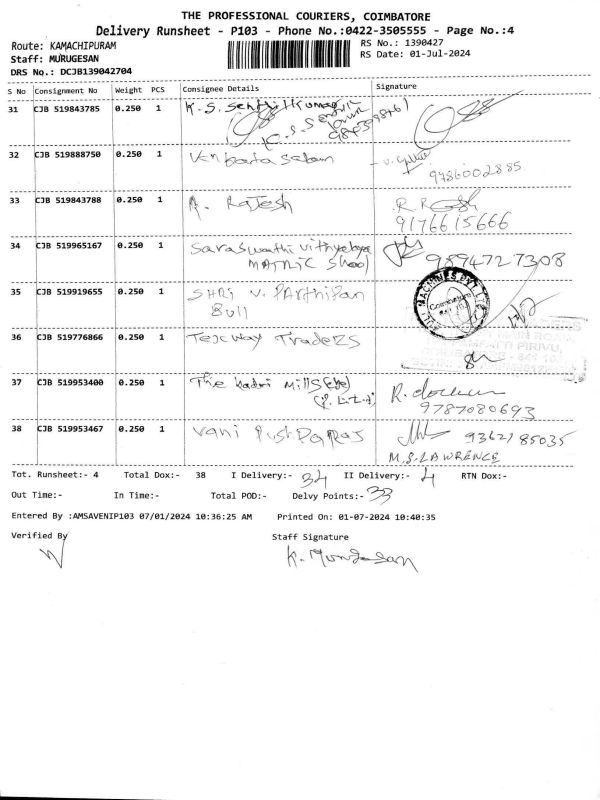 THE PROFESSIONAL COURIERS, COIMBATORE
Delivery Runsheet - P103 - Phone No.:0422-3505555 - Page No.:4
Route: KAMACHIPURAM
RS No.: 1390427
Staff: MURUGESAN
RS Date: 01-Jul-2024
DRS No.: DCJB139042704
S No Consignment No Weight PCS Consignee Details Signature
31 CJB 519843785 0.250 1 K.S. Senthilkumar
K.S.S
32 CJB 519888750 0.250 1 Venkatasalam
9786002885
33 CJB 519843788 0.250 1 A. Rajesh R. R
9176615666
34 CJB 519965167 0.250 1 Saraswathi
MATRIC 9894727308
35 CJB 519919655 0.250 1 SHRI V. PArthiPan
Bull
MACHINES PVT LTD
Coimbatore
36 CJB 519776866 0.250 1 Texway TradeRS
MAIN ROAD,
PIRIVU,
37 CJB 519953400 0.250 1 The kadri Mills (cbe) R.
(P. L.t.d) 9787080693
38 CJB 519953467 0.250 1 Vani PushpaRaj 9362185035
M.S. LAWRENCE
Tot. Runsheet:- 4 Total Dox:- 38 I Delivery:- 34 II Delivery:- 4 RTN Dox:-
Out Time:- In Time:- Total POD:- Delvy Points:- 33
Entered By :AMSAVENIP103 07/01/2024 10:36:25 AM Printed On: 01-07-2024 10:40:35
Verified By Staff Signature
K. Murugesan